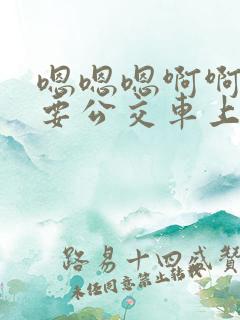 嗯嗯嗯啊啊
要公交車上
路易十四盛贊
未经同意禁止转载